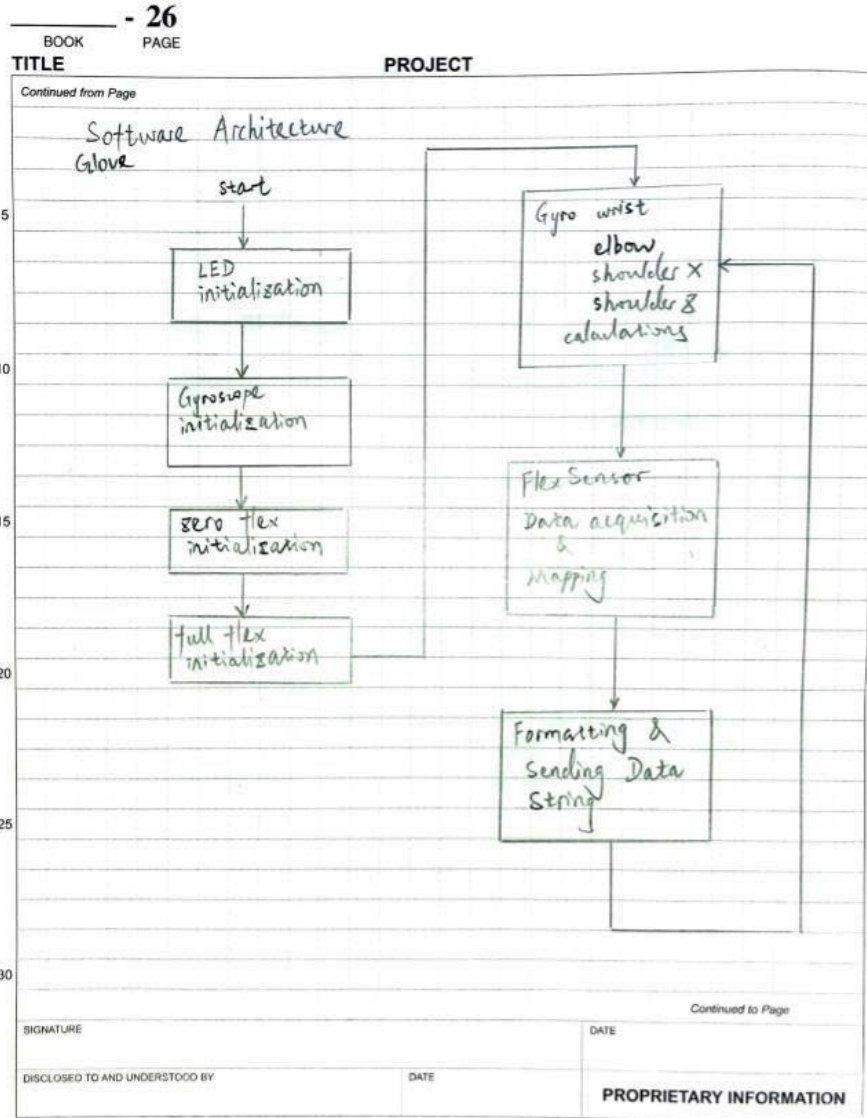 - 26
BOOK PAGE
TITLE PROJECT
Continued from Page
Software Architecture
Glove
start
LED
initialization
Gyroscope
initialization
zero flex
initialization
full flex
initialization
Gyro wrist
elbow
shoulder X
shoulder z
calculations
Flex Sensor
Data acquisition
&
Mapping
Formatting &
Sending Data
String
5
10
15
20
25
30
Continued to Page
SIGNATURE DATE
DISCLOSED TO AND UNDERSTOOD BY DATE
PROPRIETARY INFORMATION